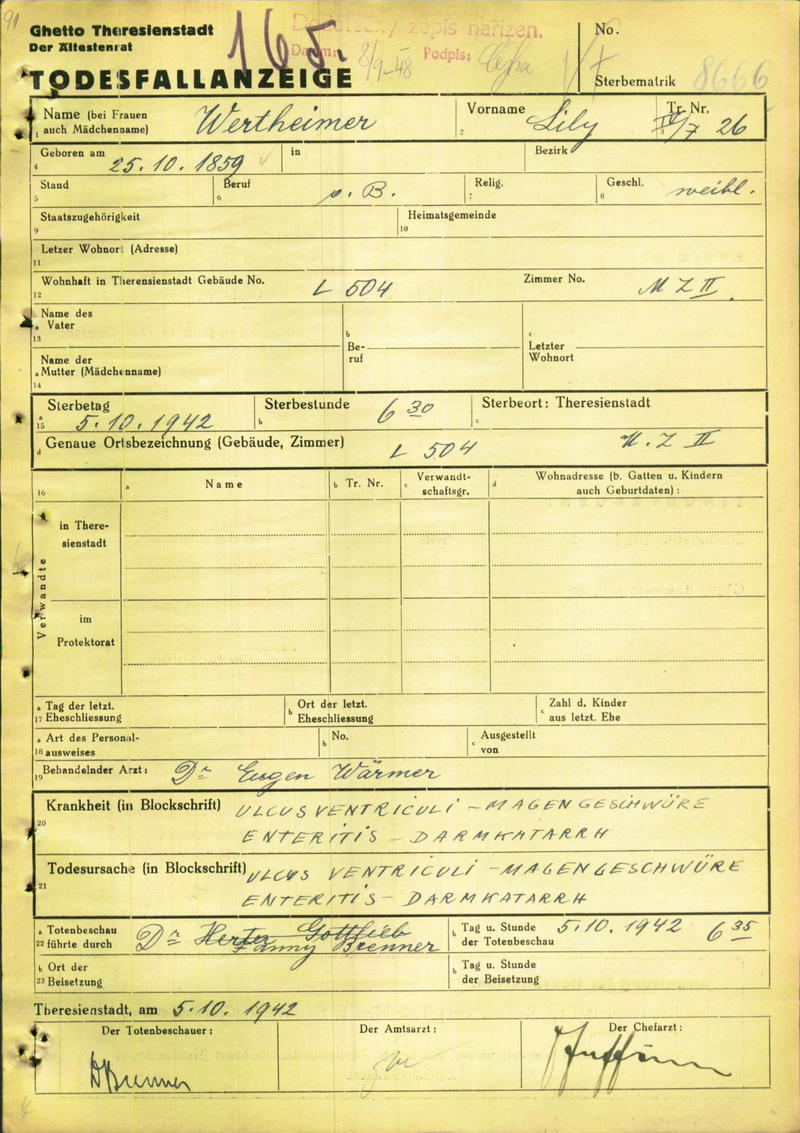 91
Ghetto Theresienstadt
Der Ältestenrat
165.
Dodatečný zápis nařízen.
Datum: 8/9-48 Podpis:
No.
TODESFALLANZEIGE
Sterbematrik 8666
Name (bei Frauen auch Mädchenname) Wertheimer
1
Vorname Lily
2
Tr. Nr. IV/7 26
3
Geboren am 25.10.1859
4
in
Bezirk
Stand
5
Beruf o.B.
6
Relig.
7
Geschl. weibl.
8
Staatszugehörigkeit
9
Heimatsgemeinde
10
Letzer Wohnort (Adresse)
11
Wohnhaft in Therensienstadt Gebäude No. L 504
12
Zimmer No. M Z II.
Name des
a Vater
13
b
Be-
ruf
c
Letzter
Wohnort
Name der
a Mutter (Mädchenname)
14
Sterbetag
a
15 5.10.1942
Sterbestunde 6 30
b
Sterbeort: Theresienstadt
c
Genaue Ortsbezeichnung (Gebäude, Zimmer) L 504
d
Z II
16
a Name
b Tr. Nr.
c Verwandt-
schaftsgr.
d Wohnadresse (b. Gatten u. Kindern
auch Geburtdaten) :
Verwandte
in There-
sienstadt
im
Protektorat
a Tag der letzt.
17 Eheschliessung
b Ort der letzt.
Eheschliessung
c Zahl d. Kinder
aus letzt. Ehe
a Art des Personal-
18 ausweises
b No.
c Ausgestellt
von
Behandelnder Arzt: Dr Eugen Wärmer
19
Krankheit (in Blockschrift) ULCUS VENTRICULI – MAGENGESCHWÜRE
20
ENTERITIS – DARMKATARRH
Todesursache (in Blockschrift) ULCUS VENTRICULI – MAGENGESCHWÜRE
21
ENTERITIS – DARMKATARRH
a Totenbeschau
22 führte durch Dr Herta Gottlieb
Fanny Brenner
b Tag u. Stunde
der Totenbeschau 5.10.1942 6 35
b Ort der
23 Beisetzung
b Tag u. Stunde
der Beisetzung
Theresienstadt, am 5.10.1942
Der Totenbeschauer:
Der Amtsarzt:
Der Chefarzt:
DBrenner